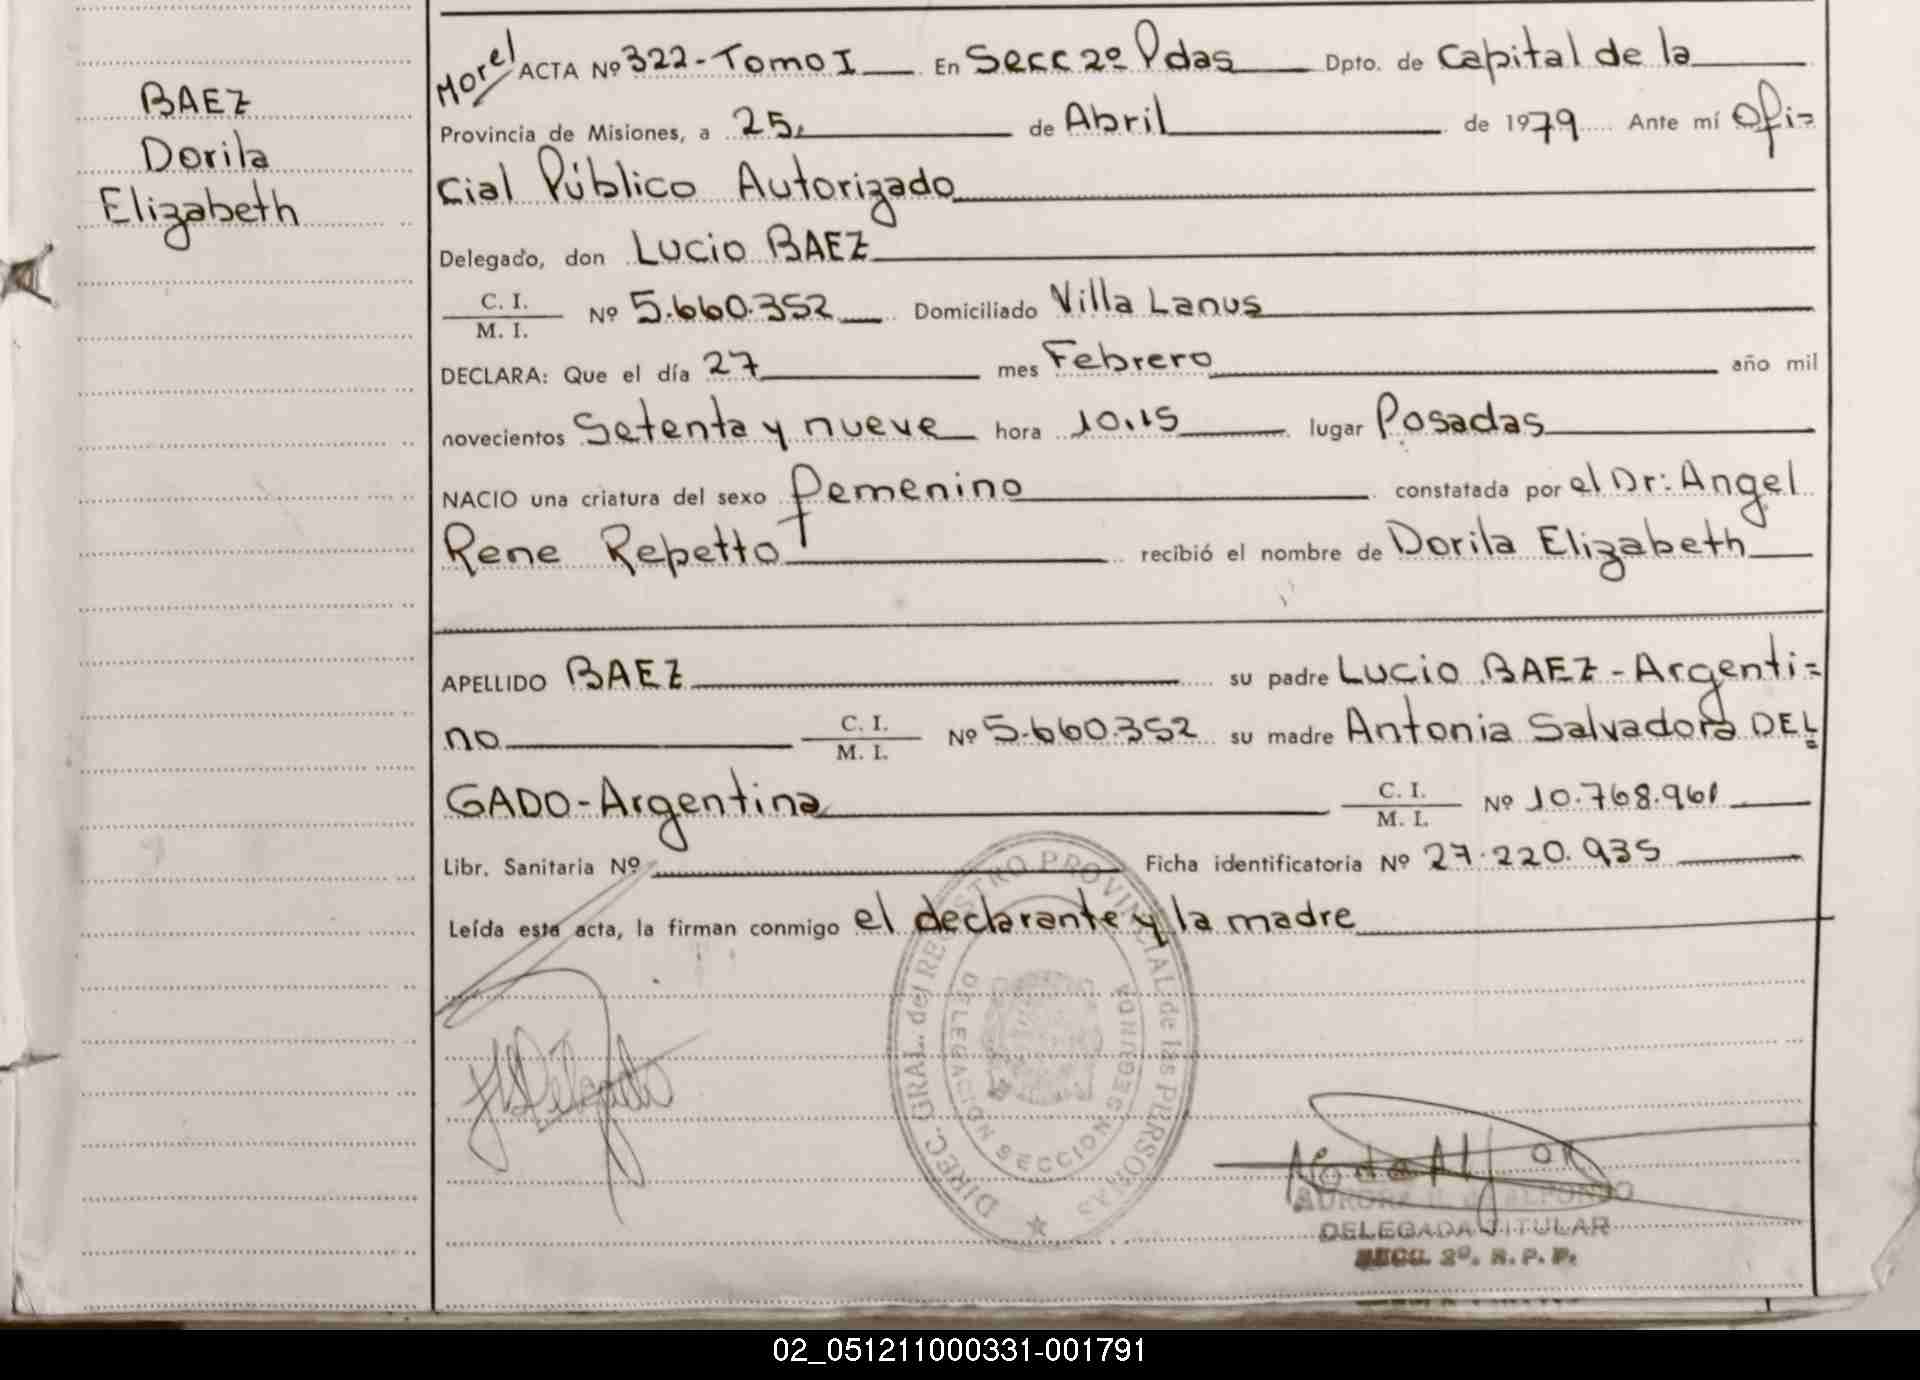 BAEZ
Dorila
Elizabeth
Morel ACTA Nº 322-Tomo I En Secc 2º Pdas Dpto. de Capital de la
Provincia de Misiones, a 25, de Abril de 1979 Ante mí Ofi=
cial Público Autorizado
Delegado, don Lucio BAEZ
C. I.
M. I. Nº 5.660.352 Domiciliado Villa Lanus
DECLARA: Que el día 27 mes Febrero año mil
novecientos Setenta y nueve hora 10.15 lugar Posadas
NACIO una criatura del sexo femenino constatada por el Dr: Angel
Rene Repetto recibió el nombre de Dorila Elizabeth
APELLIDO BAEZ su padre Lucio BAEZ-Argenti=
no C. I. M. I. Nº 5.660.352 su madre Antonia Salvadora DEL=
GADO-Argentina C. I. M. I. Nº 10.768.961
Libr. Sanitaria Nº Ficha identificatoria Nº 27.220.935
Leída esta acta, la firman conmigo el declarante y la madre
DIREC. GRAL. del REGISTRO PROVINCIAL de las PERSONAS
DELEGACION SECCION SEGUNDA
Delgado
AURORA ALFONZO
DELEGADA TITULAR
SECC. 2º. R. P. P.
02_051211000331-001791